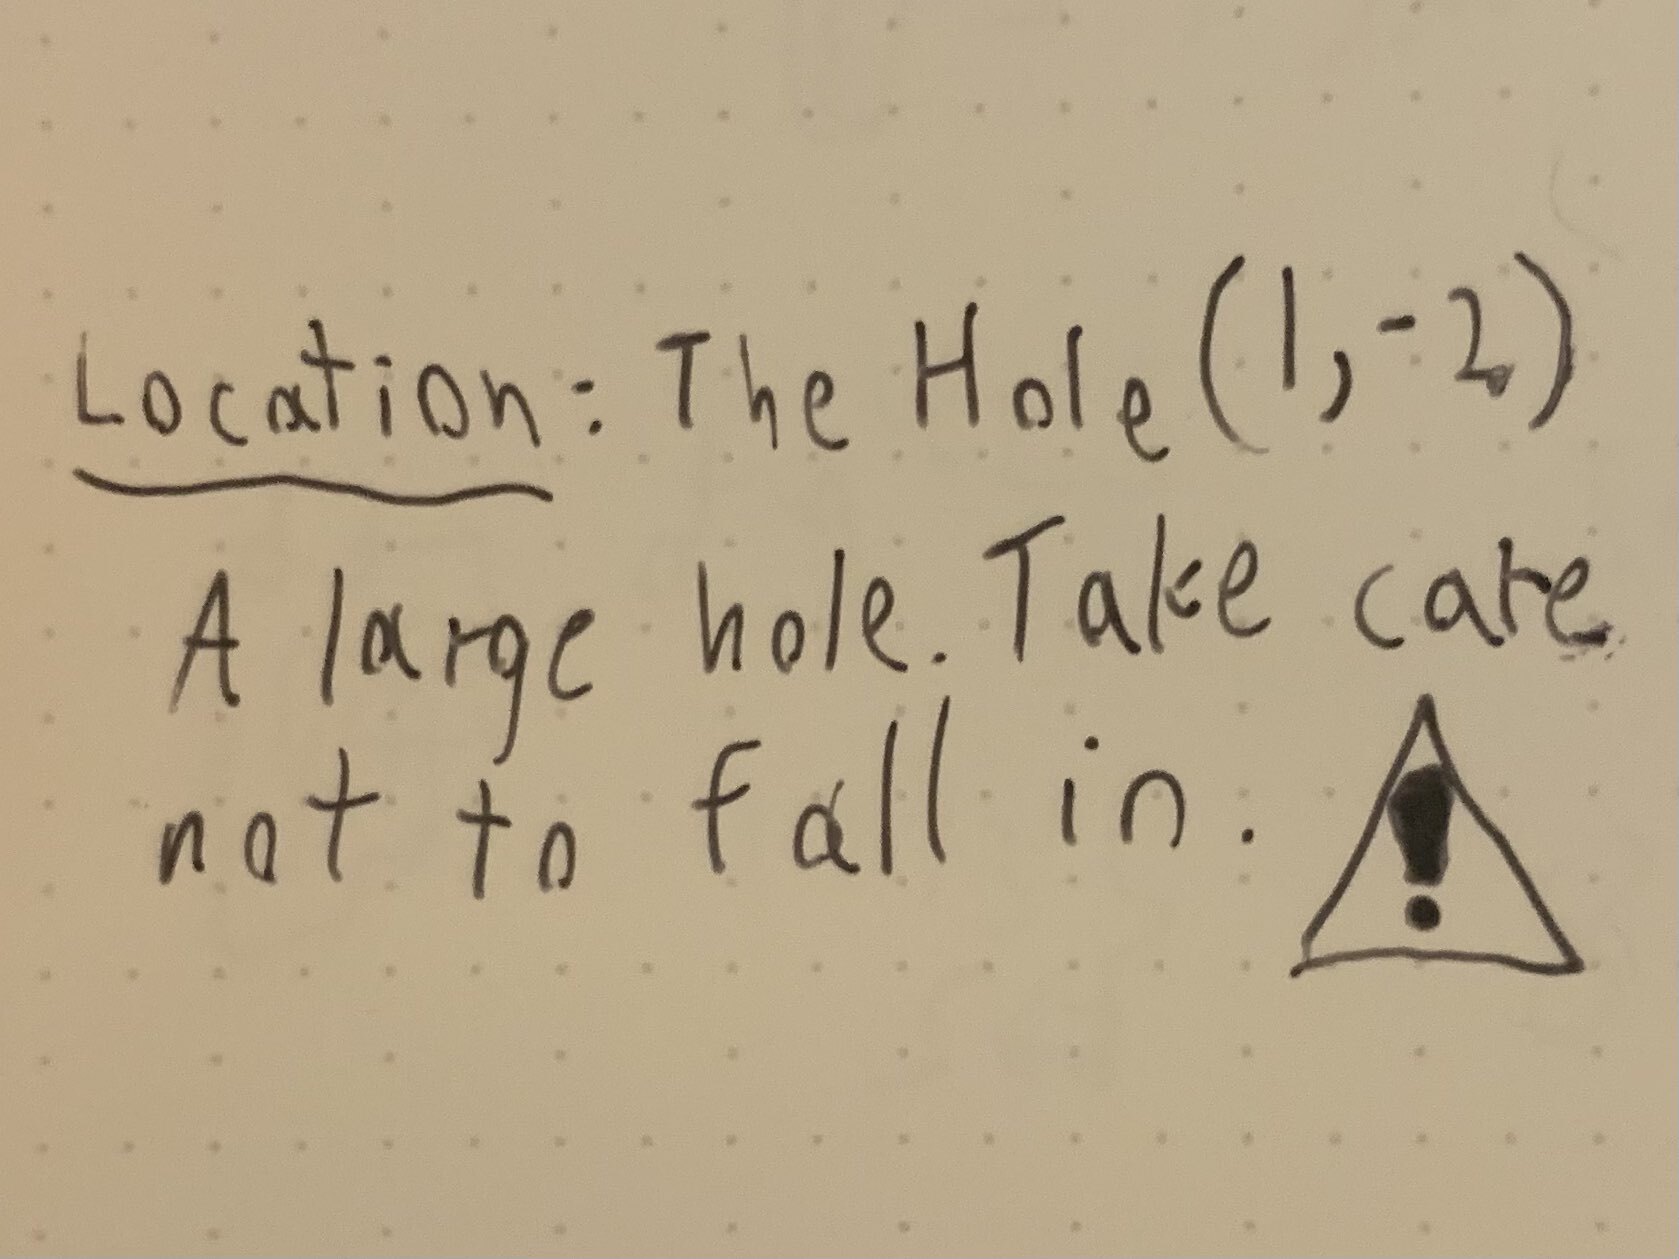 Location: The Hole (1,-2)
A large hole. Take care
not to fall in.
!